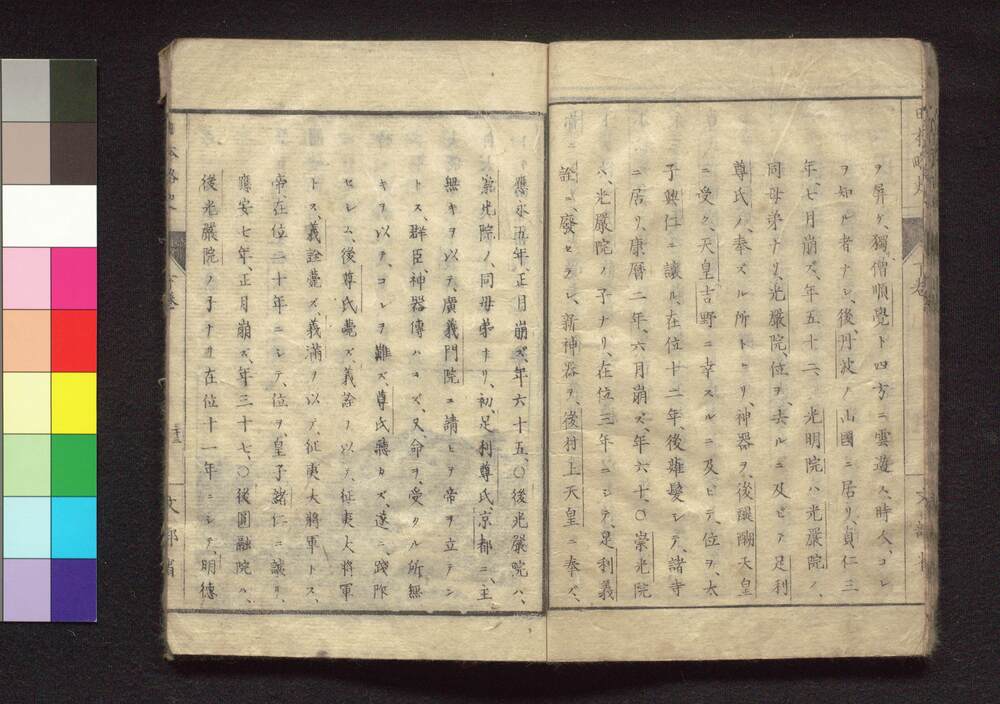 ヲ屏ケ、獨僧順覺ト四方ニ雲遊ス、時人、コレ
ヲ知ル者ナシ、後、丹波ノ山國ニ居リ、貞仁三
年、七月崩ズ、年五十二、〇光明院ハ光嚴院ノ、
同母弟ナリ、光嚴院、位ヲ去ルニ及ビテ足利
尊氏ノ、奉ズル所トナリ、神器ヲ、後醍醐天皇
ニ受ク、天皇吉野ニ幸スルニ及ビテ、位ヲ、太
子興仁ニ讓ル、在位十二年、後薙髮シテ、諸寺
ニ居リ、康曆二年、六月崩ズ、年六十、〇崇光院
ハ、光嚴院ノ子ナリ、在位三年ニシテ、足利義
詮ニ、廢セラレ、新神器ヲ、後村上天皇ニ奉ズ、
應永五年、正月崩ズ、年六十五、〇後光嚴院ハ、
崇光院ノ、同母弟ナリ、初、足利尊氏、京都ニ、主
無キヲ以テ、廣義門院ニ請ヒテ帝ヲ立テン
トス、群臣、神器傳ハラズ、又、命ヲ、受クル所無
キヲ以テ、コレヲ難ズ、尊氏聽カズ、遂ニ、踐阼
セシム、後尊氏薨ズ、義詮ヲ以テ、征夷大將軍
トス、義詮薨ズ、義滿ヲ以テ、征夷大將軍トス、
帝在位二十年ニシテ、位ヲ、皇子諸仁ニ讓リ、
應安七年、正月崩ズ、年三十七、〇後圓融院ハ、
後光嚴院ノ子ナリ在位十一年ニシテ、明德
文部省